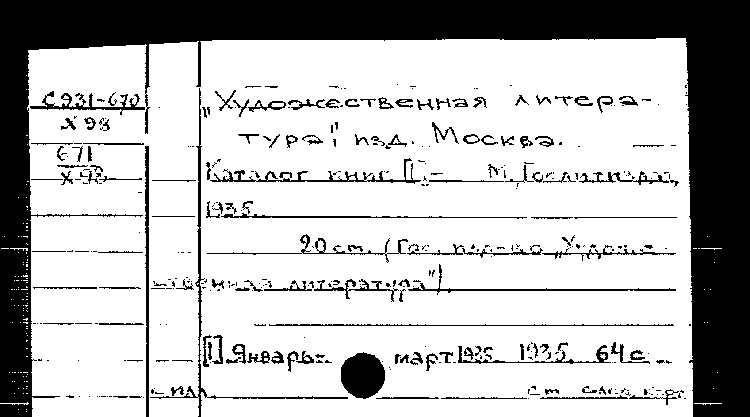 С931-670
X 98
671
X-98
„Художественная литера-
тура", изд. Москва.
Каталог книг. [I]- М., Гослитиздат,
1935.
20 cm. (Гос. изд-во „Художе-
ственная литература").
[I] Январь- март 1935. 1935. 64 с.
с илл. См. след. карт.